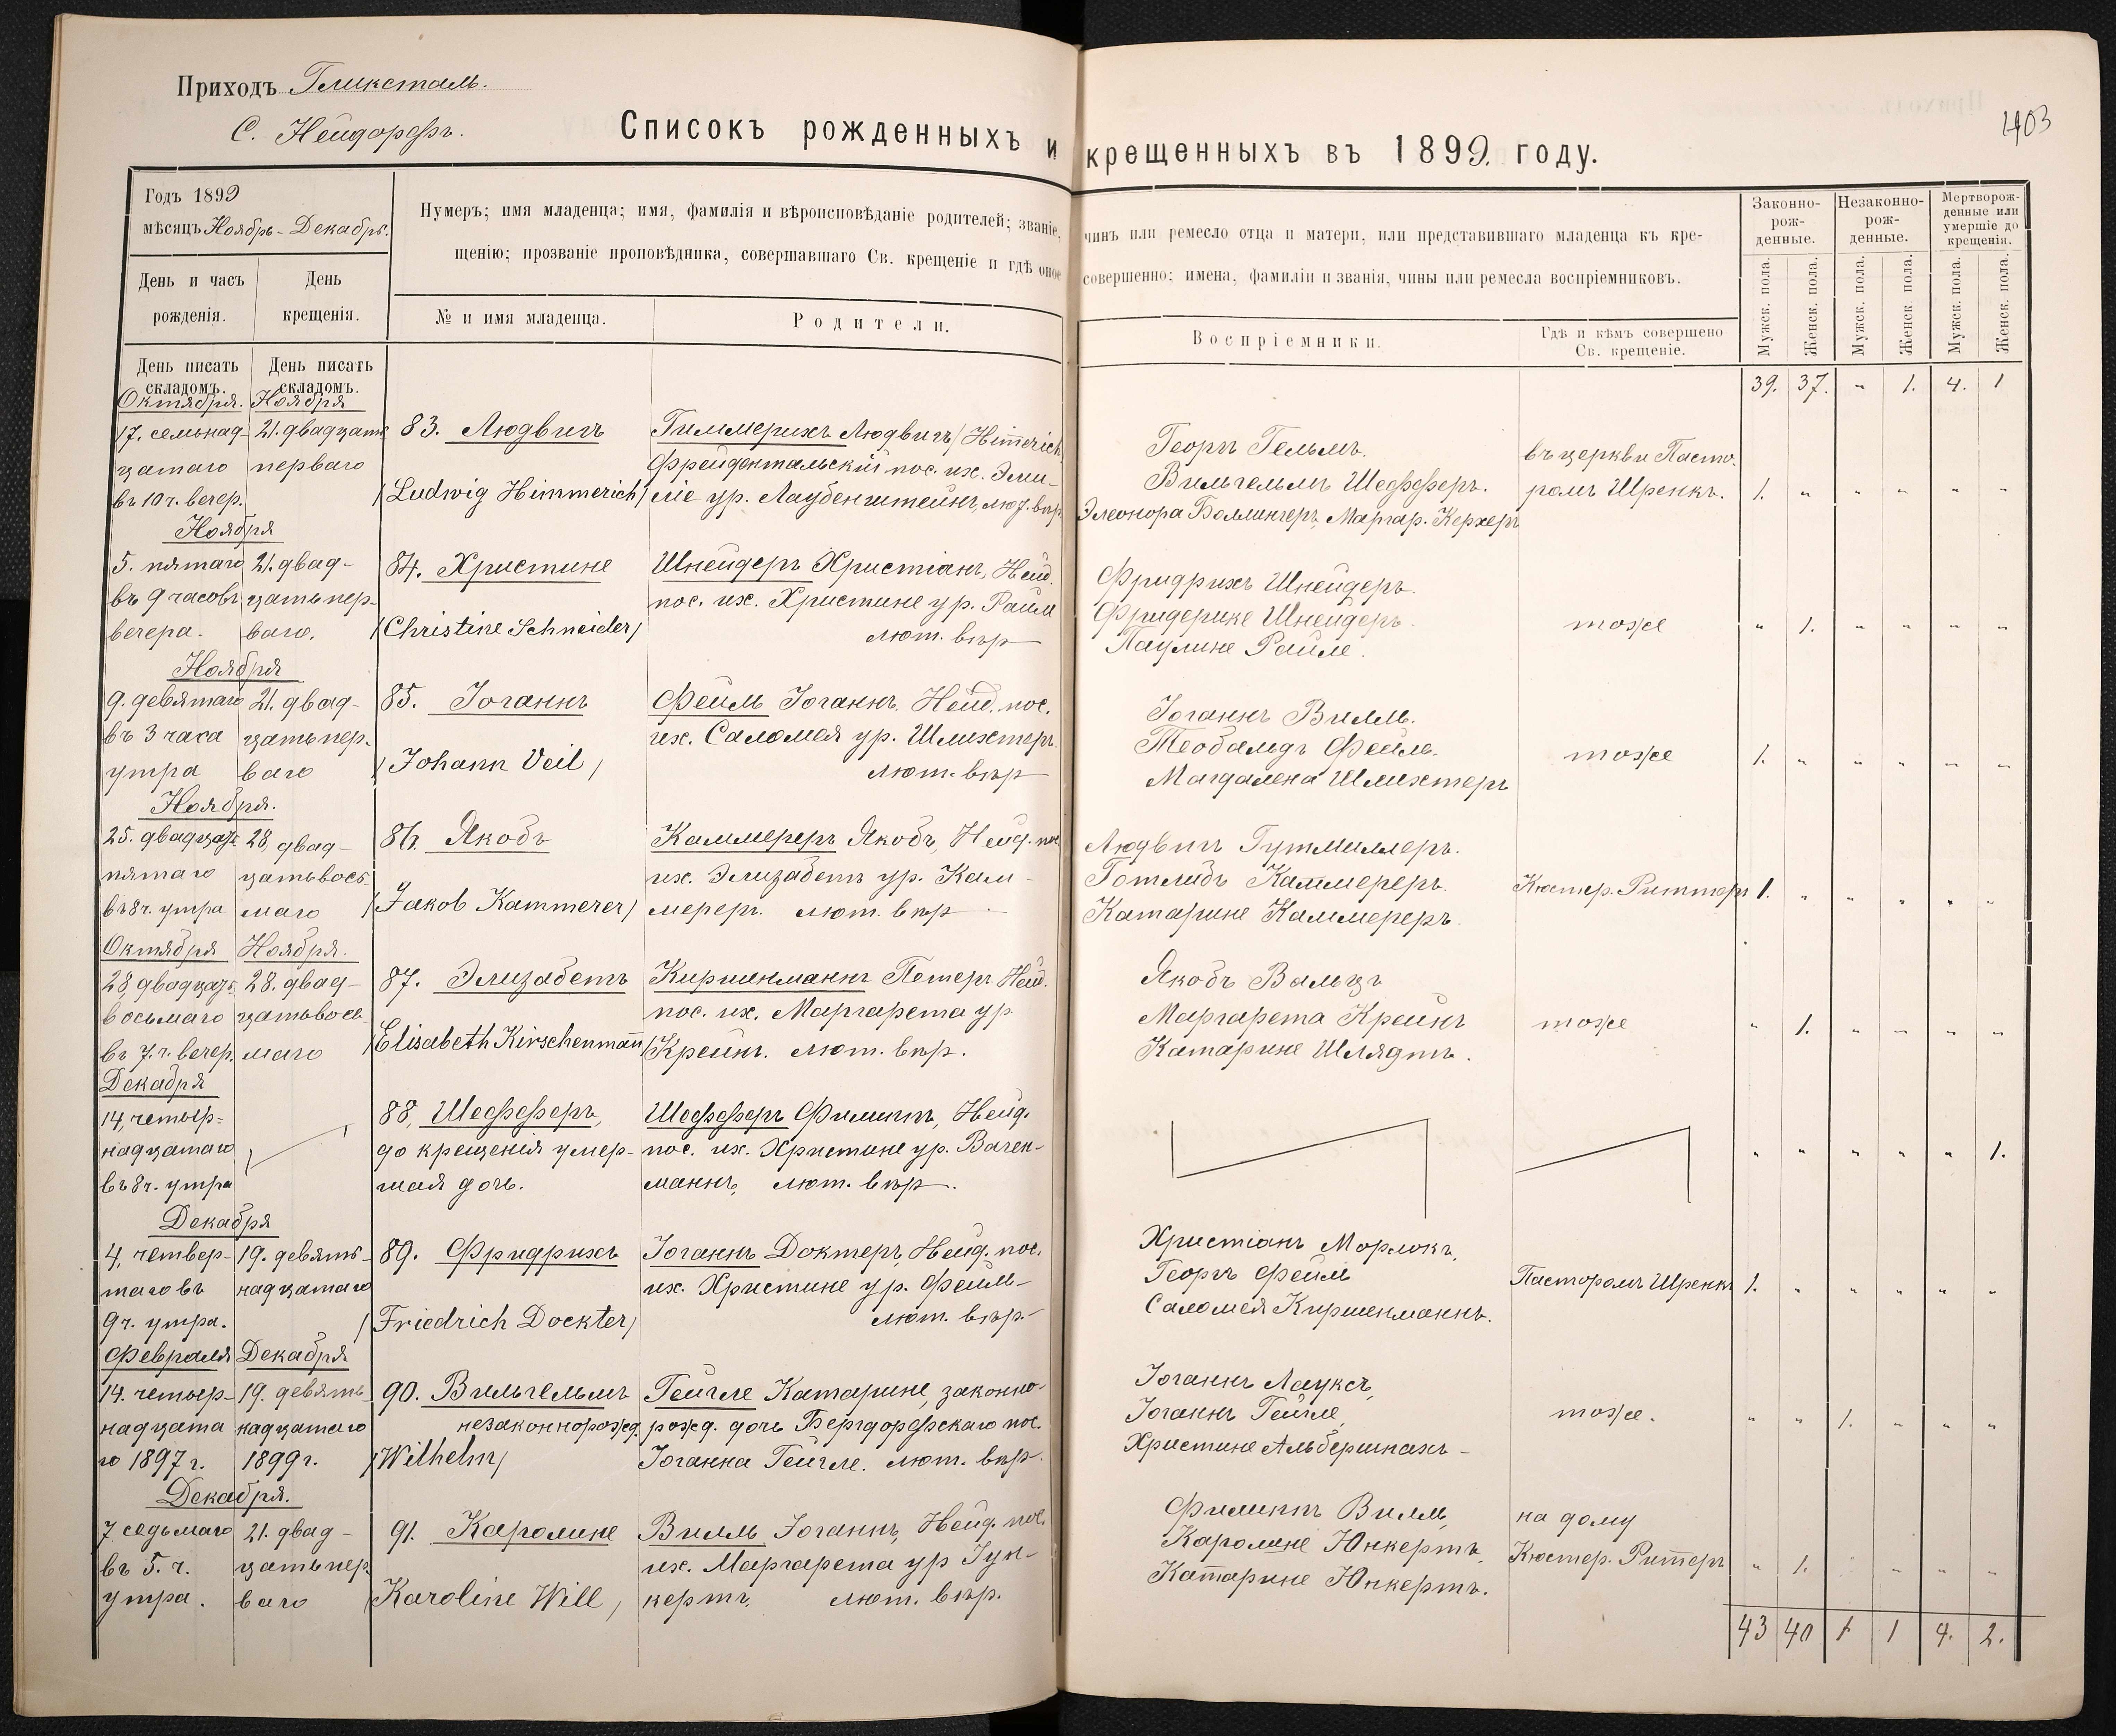 Приходъ Гликсталь.
С. Нейдорфъ.
Списокъ рожденныхъ и крещенныхъ въ 1899. году.
403
Годъ 1899
мѣсяцъ Ноябрь - Декабрь.
Нумеръ; имя младенца; имя, фамилія и вѣроисповѣданіе родителей; званіе, чинъ или ремесло отца и матери, или представившаго младенца къ кре-
щенію; прозваніе проповѣдника, совершавшаго Св. крещеніе и гдѣ оное совершенно; имена, фамиліи и званія, чины или ремесла воспріемниковъ.
Законно-рож-денные.
Незаконно-рож-денные.
Мертворож-денные или умершіе до крещенія.
День и часъ рожденія.
День крещенія.
№ и имя младенца.
Родители.
Воспріемники.
Гдѣ и кѣмъ совершено Св. крещеніе.
Мужск. пола. Женск. пола. Мужск. пола. Женск пола. Мужск. пола. Женск. пола.
День писать складомъ.
День писать складомъ.
39. 37. - 1. 4. 1
Октября. Ноября
17. семьнад- 21. двадцать 83. Людвигъ Гиммерихъ Людвигъ /Himerich
цатаго перваго Фрейдентальскій пос. их. Эми-
въ 10 ч. вечер. /Ludwig Himmerich/ ліе ур. Лаубенштейнъ, лют. вѣр
Георгъ Гельмъ.
Вильгельмъ Шефферъ.
Элеонора Боллингеръ, Маргар. Керхеръ
въ церкви Пасто-
ромъ Шренкъ. 1. " " " " "
Ноября
5. пятаго 21. двад- 84. Христине Шнейдеръ Христіанъ, Нейд.
въ 9 часовъ цатьпер- пос. их. Христине ур. Райле
вечера. ваго. /Christine Schneider/ лют. вѣр
Фридрихъ Шнейдеръ.
Фридерике Шнейдеръ.
Паулине Райле.
тоже " 1. " " " "
Ноября
9. девятаго 21. двад- 85. Іоганнъ Фейль Іоганнъ. Нейд. пос.
въ 3 часа цатьпер- их. Саломея ур. Шлихтеръ.
утра ваго /Johann Veil/ лют. вѣр
Іоганнъ Вилль.
Теобальдъ Фейль.
Магдалена Шлихтеръ
тоже 1. " " " " "
Ноября.
25. двадцать 28. двад- 86. Якобъ Каммереръ Якобъ, Нейд. пос
пятаго цатьвось- их. Элизабетъ ур. Кам-
въ 8 ч. утра маго /Jakob Kammerer/ мереръ. лют. вѣр
Людвигъ Гутмиллеръ.
Готлибъ Каммереръ.
Катарине Каммереръ.
Кюстер. Риттеръ 1. " " " " "
Октября Ноября.
28 двадцать 28. двад- 87. Элизабетъ Киршенманнъ Петеръ Нейд.
восьмаго цатьвось- пос. их. Маргарета ур
въ 7. ч. вечер. маго /Elisabeth Kirschenmann/ Крейнъ. лют. вѣр.
Якобъ Вальцъ
Маргарета Крейнъ
Катарине Шлядтъ.
тоже " 1. " " " "
Декабря
14, четыр- 88. Шефферъ, Шефферъ Филиппъ, Нейд.
надцатаго до крещенія умер- пос. их. Христине ур.Ваген-
въ 8 ч. утра шая дочь. маннъ, лют. вѣр.
" " " " " 1.
Декабря
4, четвер- 19. девять- 89. Фридрихъ Іоганнъ Доктеръ, Нейд. пос.
таго въ надцатаго их. Христине ур. Фейль
9 ч. утра. /Friedrich Dockter/ лют. вѣр.
Христіанъ Морлокъ,
Георгъ Фейль
Саломея Киршенманнъ.
Пасторомъ Шренкъ 1. " " " " "
Февраля Декабря
14. четыр- 19. девять- 90. Вильгельмъ Гейгле Катарине, законно-
надцата надцатаго незаконнорожд. рожд. дочь Бергдорфскаго пос.
го 1897 г. 1899 г. /Wilhelm/ Іоганна Гейгле. лют. вѣр.
Іоганнъ Лауксъ,
Іоганнъ Гейгле,
Христине Альбершнахъ -
тоже. " " 1. " " "
Декабря.
7 седьмаго 21. двад- 91. Каролине Вилль Іоганнъ, Нейд. пос.
въ 5. ч. цатьпер- их. Маргарета ур Іун-
утра. ваго Karoline Will, кертъ. лют. вѣр.
Филиппъ Вилль,
Каролине Юнкертъ,
Катарине Юнкертъ.
на дому
Кюстер. Риттеръ " 1. " " "
43 40 1 1 4. 2.